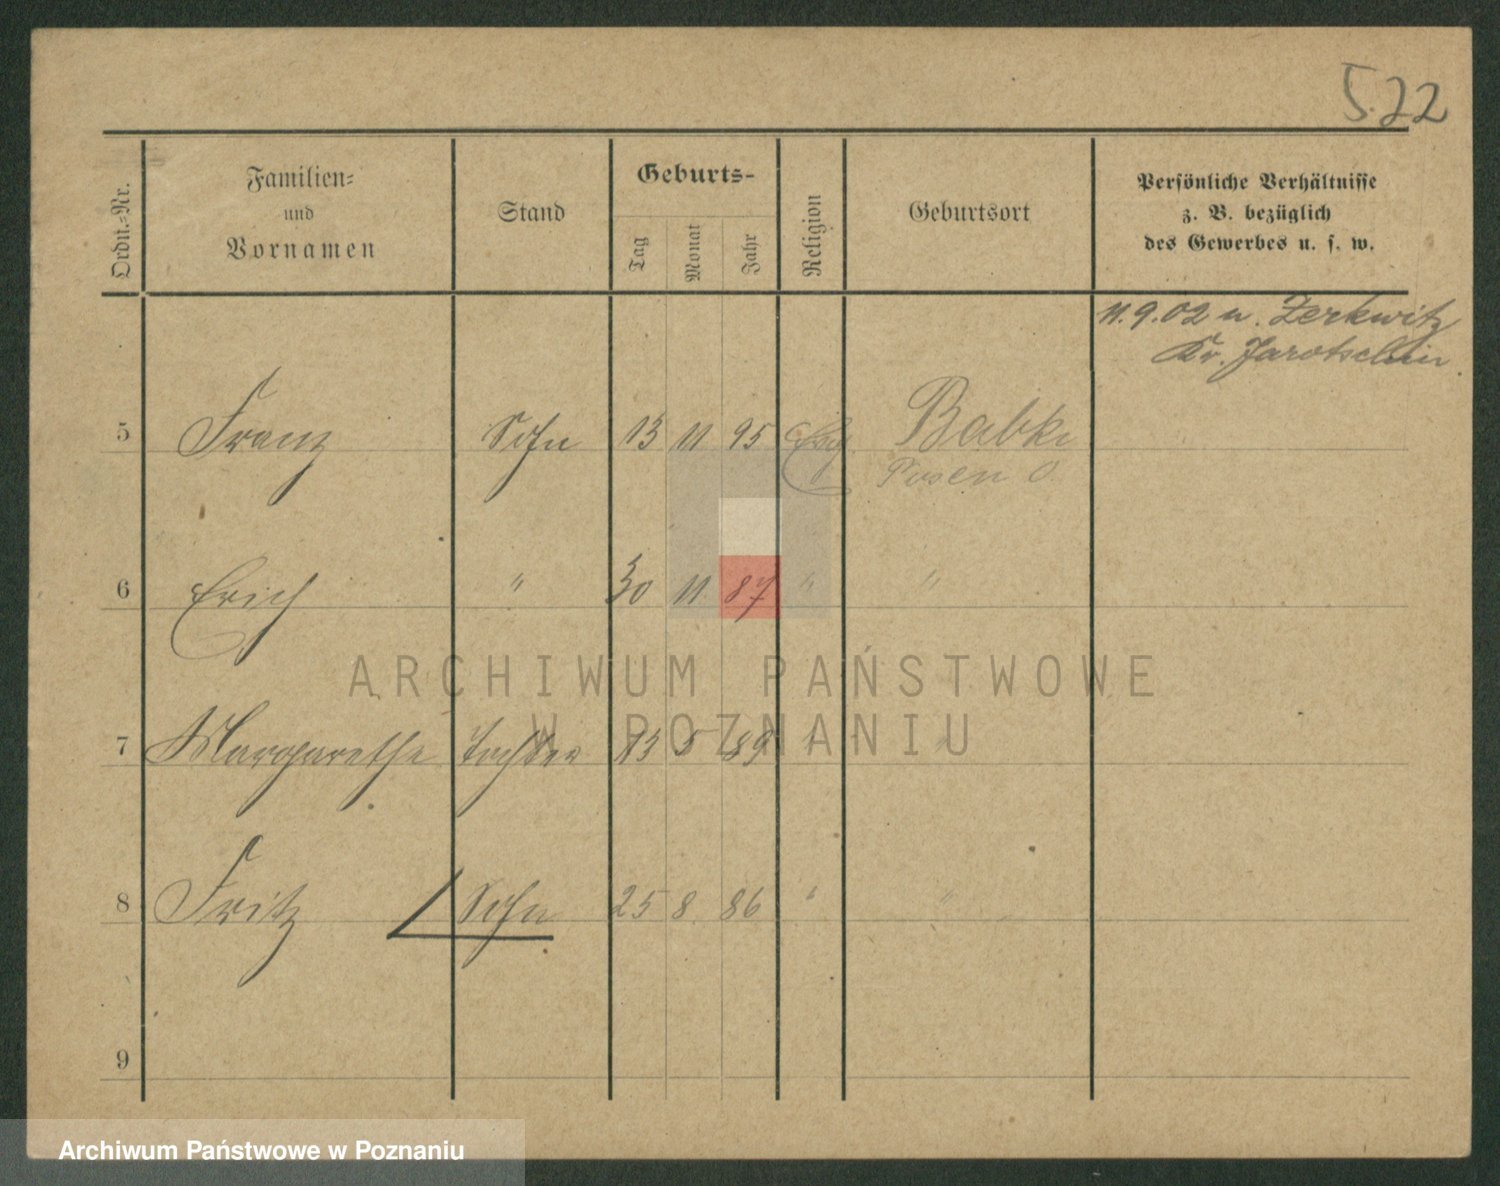 5.22
Ordn.-Nr.
Familien-
und
Vornamen
Stand
Geburts-
Tag
Monat
Jahr
Religion
Geburtsort
Persönliche Verhältnisse
z. B. bezüglich
des Gewerbes u. s. w.
11.9.02 n. Zerkwitz
Kr. Jarotschin
5 Franz Sohn 13 11 95 Evg. Babki
Posen O.
6 Erich " 30 11 87 " "
7 Margarethe Tochter 13 5 89 " "
8 Fritz Sohn 25 8 86 " "
9
ARCHIWUM PAŃSTWOWE
W POZNANIU
Archiwum Państwowe w Poznaniu